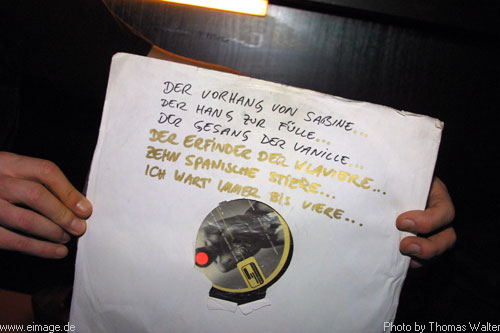 DER VORHANG VON SABINE...
DER HANG ZUR FÜLLE...
DER GESANG DER VANILLE...
DER ERFINDER DER KLAVIERE...
ZEHN SPANISCHE STIERE...
ICH WART IMMER BIS VIERE...
www.eimage.de
Photo by Thomas Walter